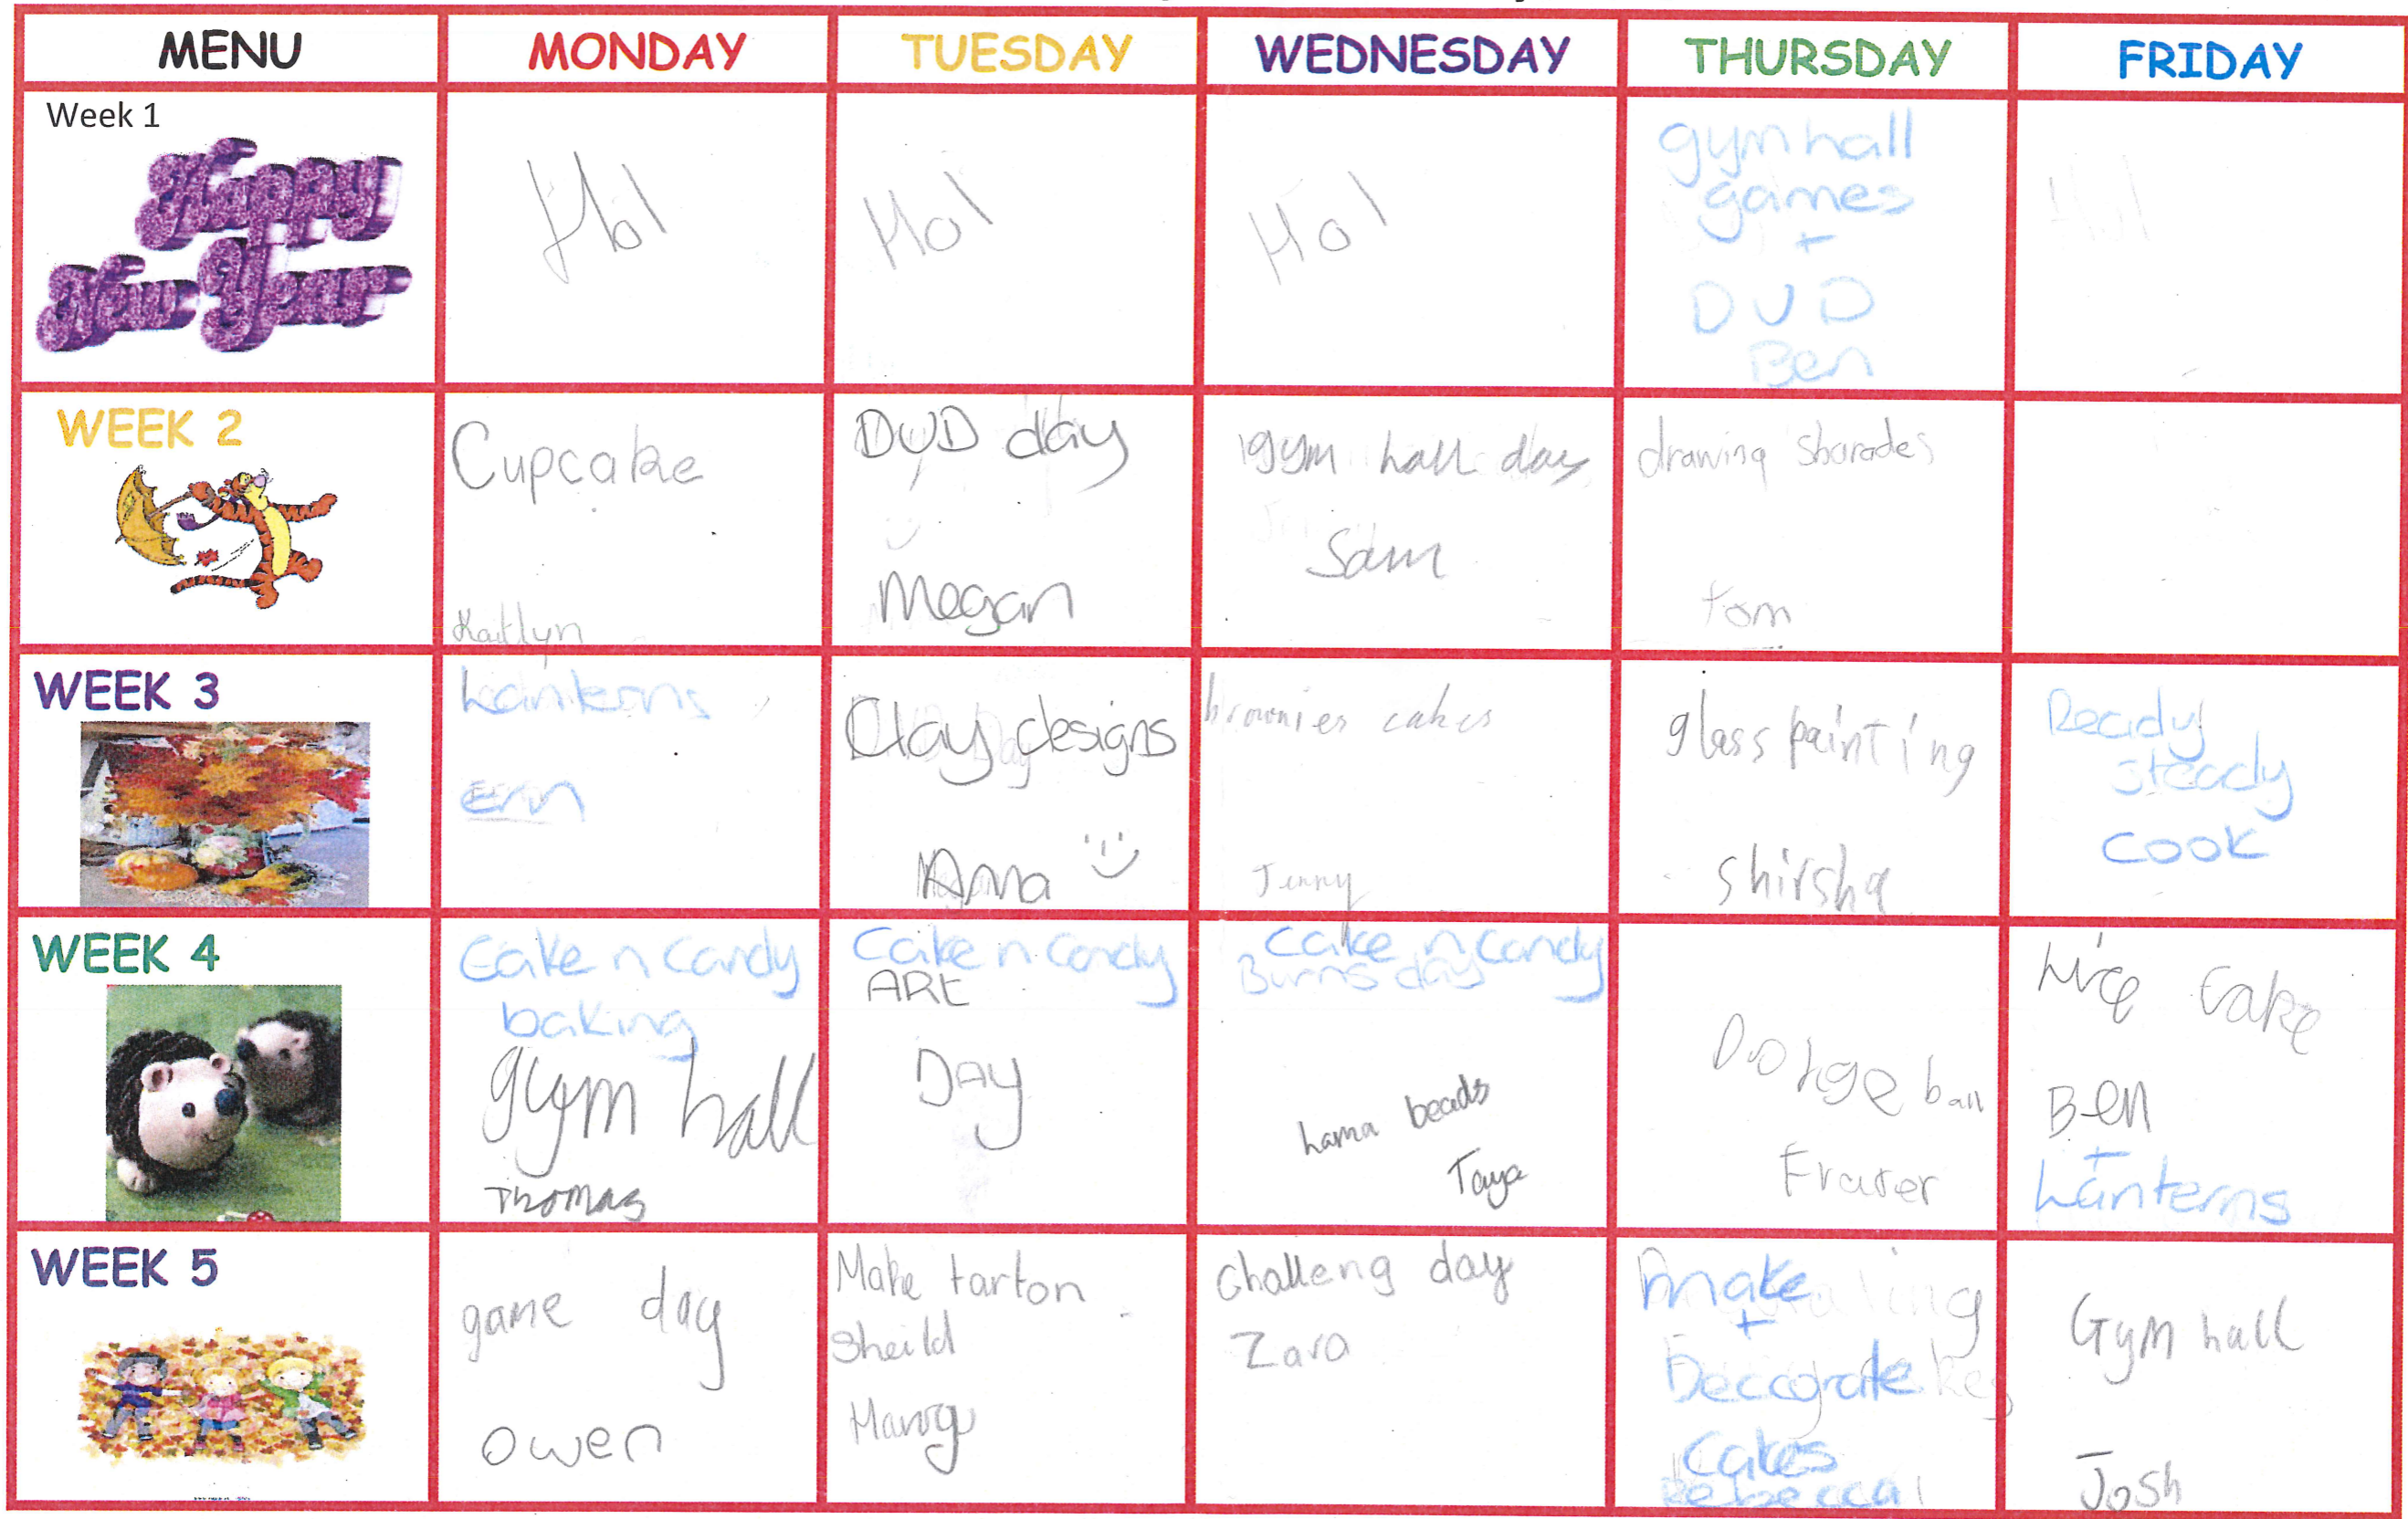 MENU MONDAY TUESDAY WEDNESDAY THURSDAY FRIDAY
Week 1
Happy
New Year
Hol
Hol
Hol
gym hall
games
+
DVD
Ben
Hol
WEEK 2
Cupcake
Kaitlyn
DVD day
Megan
gym hall day
Sam
drawing sharades
Tom
WEEK 3
Lanterns
Erin
Clay designs
Anna
brownies cakes
Jenny
glass painting
shirsha
Ready
steady
cook
WEEK 4
Cake n Candy
baking
gym hall
Thomas
Cake n Candy
ART
DAy
Cake n Candy
Burns day
hama beads
Taya
Dodge ball
Fraser
Cake
Ben
+
Lanterns
WEEK 5
game day
Owen
Make tarton
Sheild
Challeng day
Zara
make
+
Deccorate
Cakes
Rebecca
Gym hall
Josh